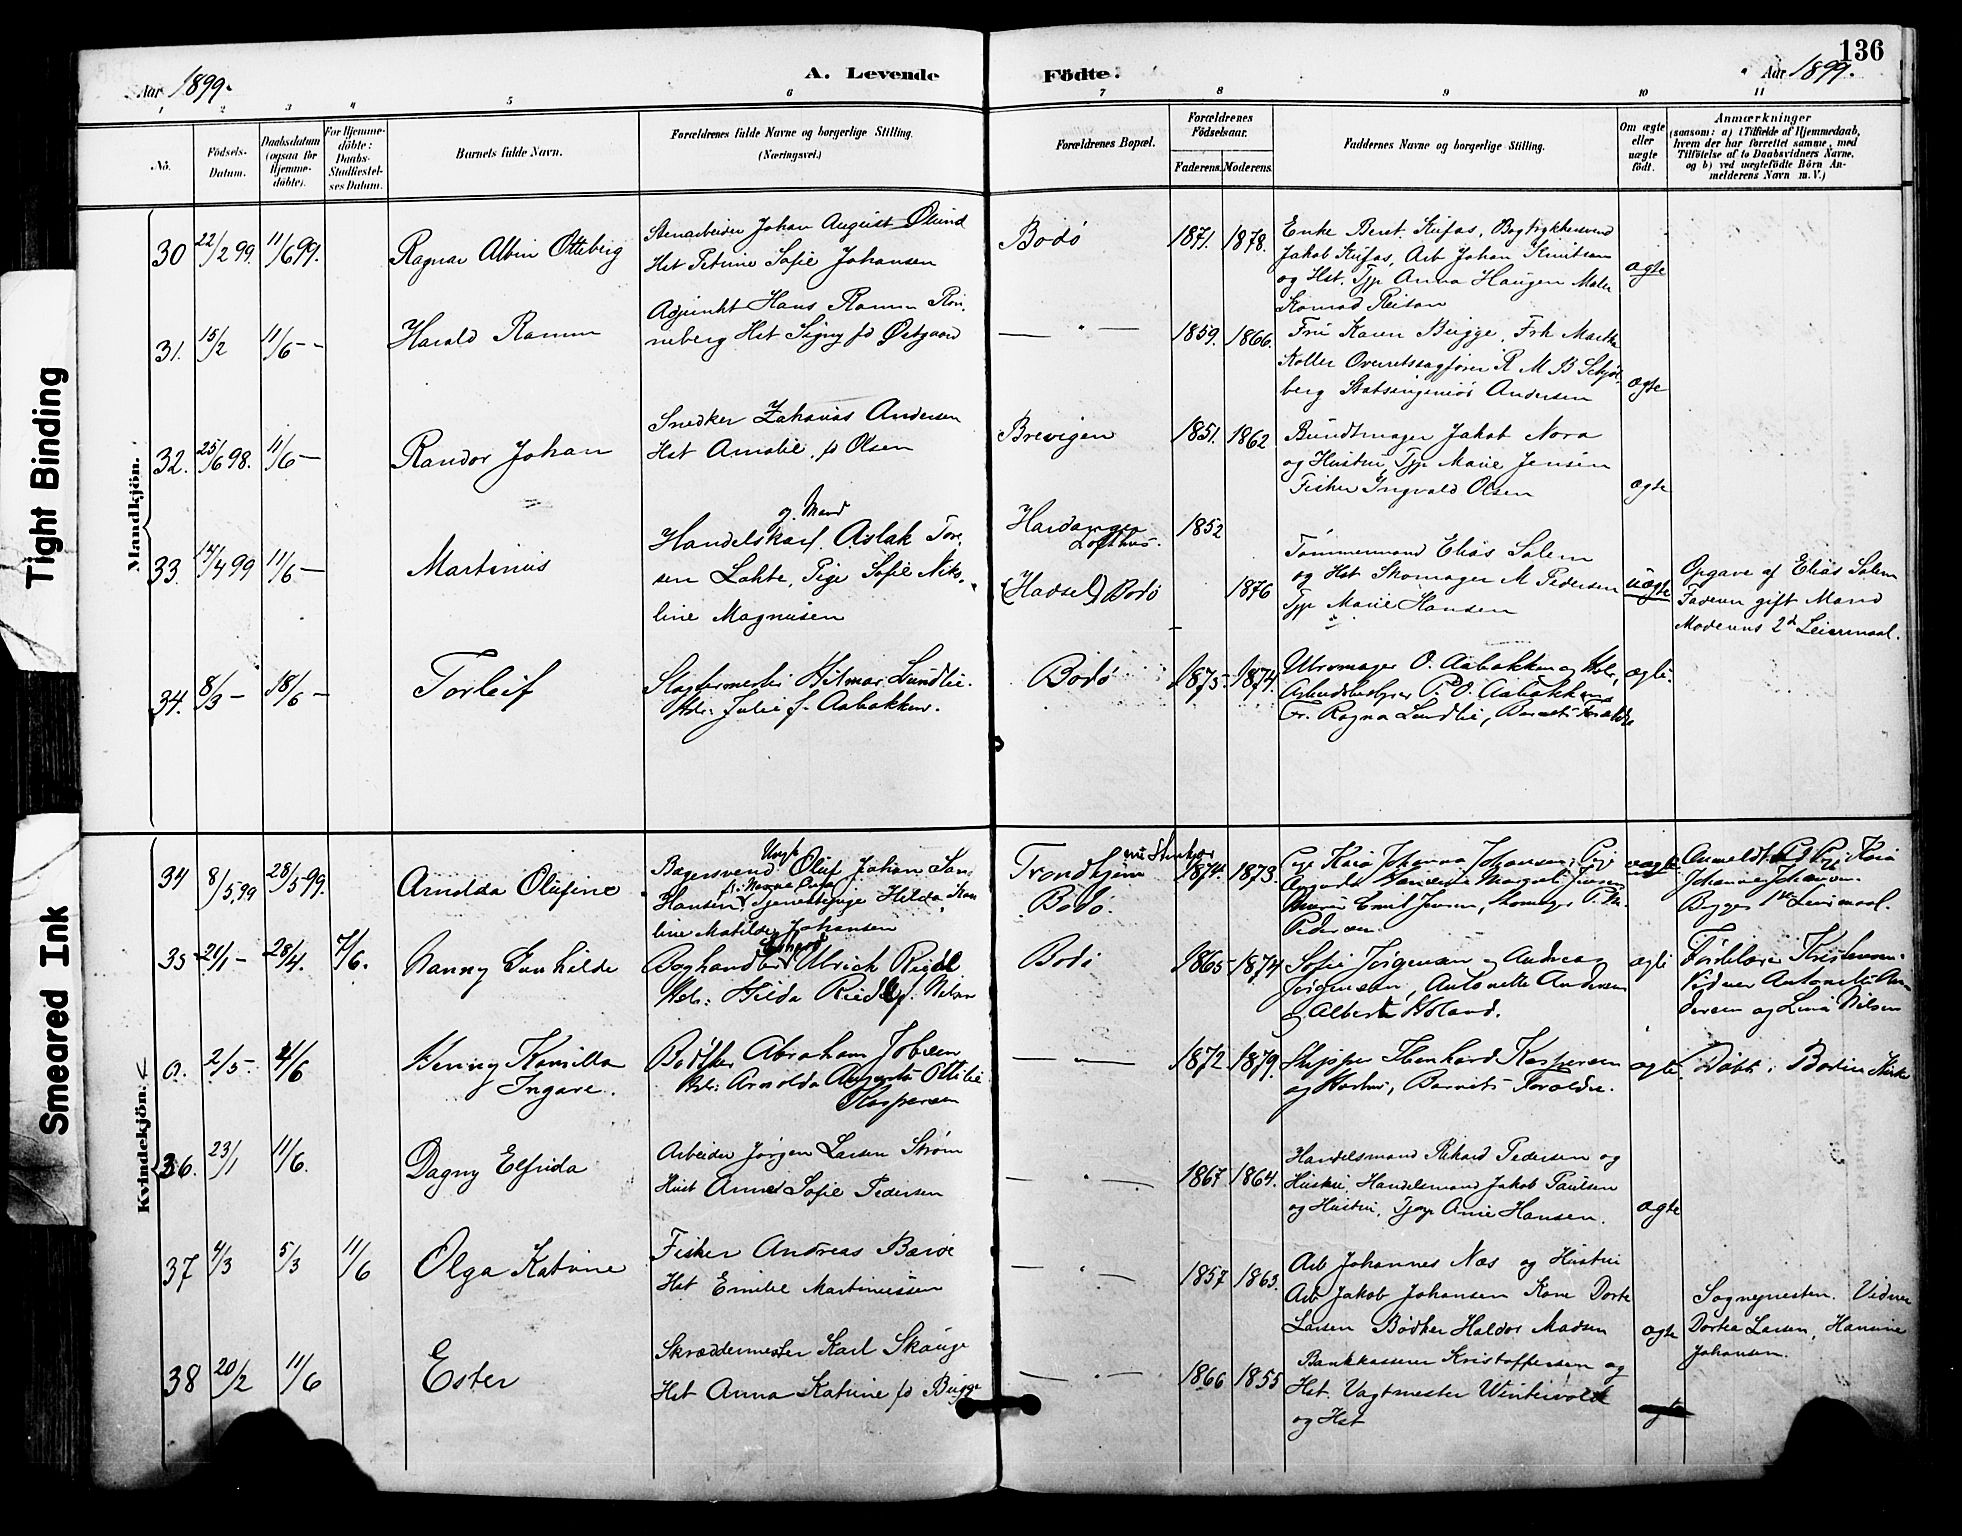 136
Aar 1899.
A. Levende
Födte.
Aar 1899.
1 2 3 4 5 6 7 8 9 10 11
Nö.
Födsels-
Datum.
Daabsdatum
(ogsaa for
Hjemme-
döbte).
For Hjemme-
döbte:
Daabs-
Stadfæstel-
ses Datum.
Barnets fulde Navn.
Forældrenes fulde Navne og borgerlige Stilling.
(Næringsvei.)
Forældrenes Bopæl.
Forældrenes
Födselsaar.
Faderens. Moderens.
Faddernes Navne og borgerlige Stilling.
Om ægte
eller
uægte
födt.
Anmærkninger
(saasom: a) i Tilfælde af Hjemmedaab,
hvem der har forrettet samme, med
Tilföielse af to Daabsvidners Navne,
og b) ved uægtefödte Börn An-
melderens Navn m. V.)
Mandkjön.
30 22/2 99. 11/6 99.
Ragnar Albin Otteberg
Stenarbeider Johan August Ølund
Hst Petrine Sofie Johansen
Bodø
1871. 1878.
Enke Beret Kufas, Bogtrykkersvend
Jakob Kufas, Arb Johan Knutsen
og Hst. Tjp Anna Haugen Maler
Konrad Reitan
ægte
31. 15/2 11/6 - -
Harald Ramm
Adjunkt Hans Ramm Rön-
neberg Hst Signy fd Østgaard
— " —
1859. 1866.
Fru Karen Bugge, Frk Martha
Koller Overretssagfører R M B Schjøl-
berg Statsingeniør Andersen
ægte
32. 25/6 98. 11/6 —
Randor Johan
Snedker Zakarias Andersen
Hst Amalie fd Olsen
Brevigen
1851. 1862
Bundtmager Jakob Nora
og Hustru, Tjp Marie Jensen
Fisker Ingvald Olsen
ægte
33. 14/4 99 11/6 —
Martinus
g. Mand
Handelskarl Aslak Tor-
sen Lahte, Pige Sofie Nik-
line Magnusen
Hardanger
Lofthus.
(Hadsel) Bodø
1852
1876
Tømmermand Elias Salem
og Hst Skomager M Pedersen
Tjp Marie Hansen
uægte
Opgave af Elias Salem
Faderen gift Mand
Moderens 2d Leiermaal.
34. 8/3 - 18/6 -
Torleif
Slagtermester Hilmar Lundlie.
Hst. Julie f. Aabakken.
Bodø
1875. 1874.
Uhrmager O. Aabakken og Hst.,
Arbeidsbestyrer P. O. Aabakken
Fr. Ragna Lundlie, Barnets Forældre
ægte.
Kvindekjön.
34 8/5 99 28/5 99.
Arnolda Olufine
Ungk
Bagersvend Oluf Johan
Hansen, Tjenestepige Hilda
line Matilde Johansen
Trondhjem nu Stenkjær
Bodø.
1874. 1873.
Pige Kaia Johanna Johansen, Pige
Murer Emil Jensen, Skomager P. M.
Pedersen
uægte
Anmeldt Pige Kaia
Johanna Johansen.
Begges 1ste Leiermaal.
35 21/1 - 28/4. 7/6.
Nanny Gunhilde
Boghandler Ulrich Riedel
Hst: Hilda Riedel f. Nilsen
Bodø
1865 1874
Sofie Jørgensen og Andrea
Jørgensen, Antonette Andersen
og Albert Holand.
ægte
Vidner Antonette An-
dersen og Lina Nilsen
0. 2/5 - 4/6
Henny Kamilla
Ingare.
Bødker Abraham Jobsen
Hst: Arnolda Augusta Ottilie
Kaspersen
— " —
1872 1879.
Skipper Kaspersen
og Hustru, Barnets Forældre.
ægte.
Døbt i Bodin Kirke
36. 23/1 11/6.
Dagny Elfrida
Arbeider Jørgen Larsen Strøm
Hust Anne Sofie Pedersen
— " —
1867 1864.
Handelsmand Rikard Pedersen og
Hustru, Handelsmand Jakob Paulsen
og Hustru, Tjp Anne Hansen.
ægte
37 4/3 5/3 11/6
Olga Katrine
Fisker Andreas Barøe
Hst Emilie Martinussen
— " —
1857 1863.
Arb Johannes Næs og Hustru
Arb Jakob Johansen Kone Dorte
Larsen Bødker Haldor Madsen
ægte
Sognepresten. Vidner
Dortea Larsen, Hannine
Johansen.
38 20/2 11/6
Ester
Skræddermester Karl Skauge
Hst Anna Katrine fd Bugge
— " —
1866 1855
Bankkasserer Kristoffersen og
Hst. Vagtmester Wintervold
og Hst
ægte
Tight Binding
Smeared Ink